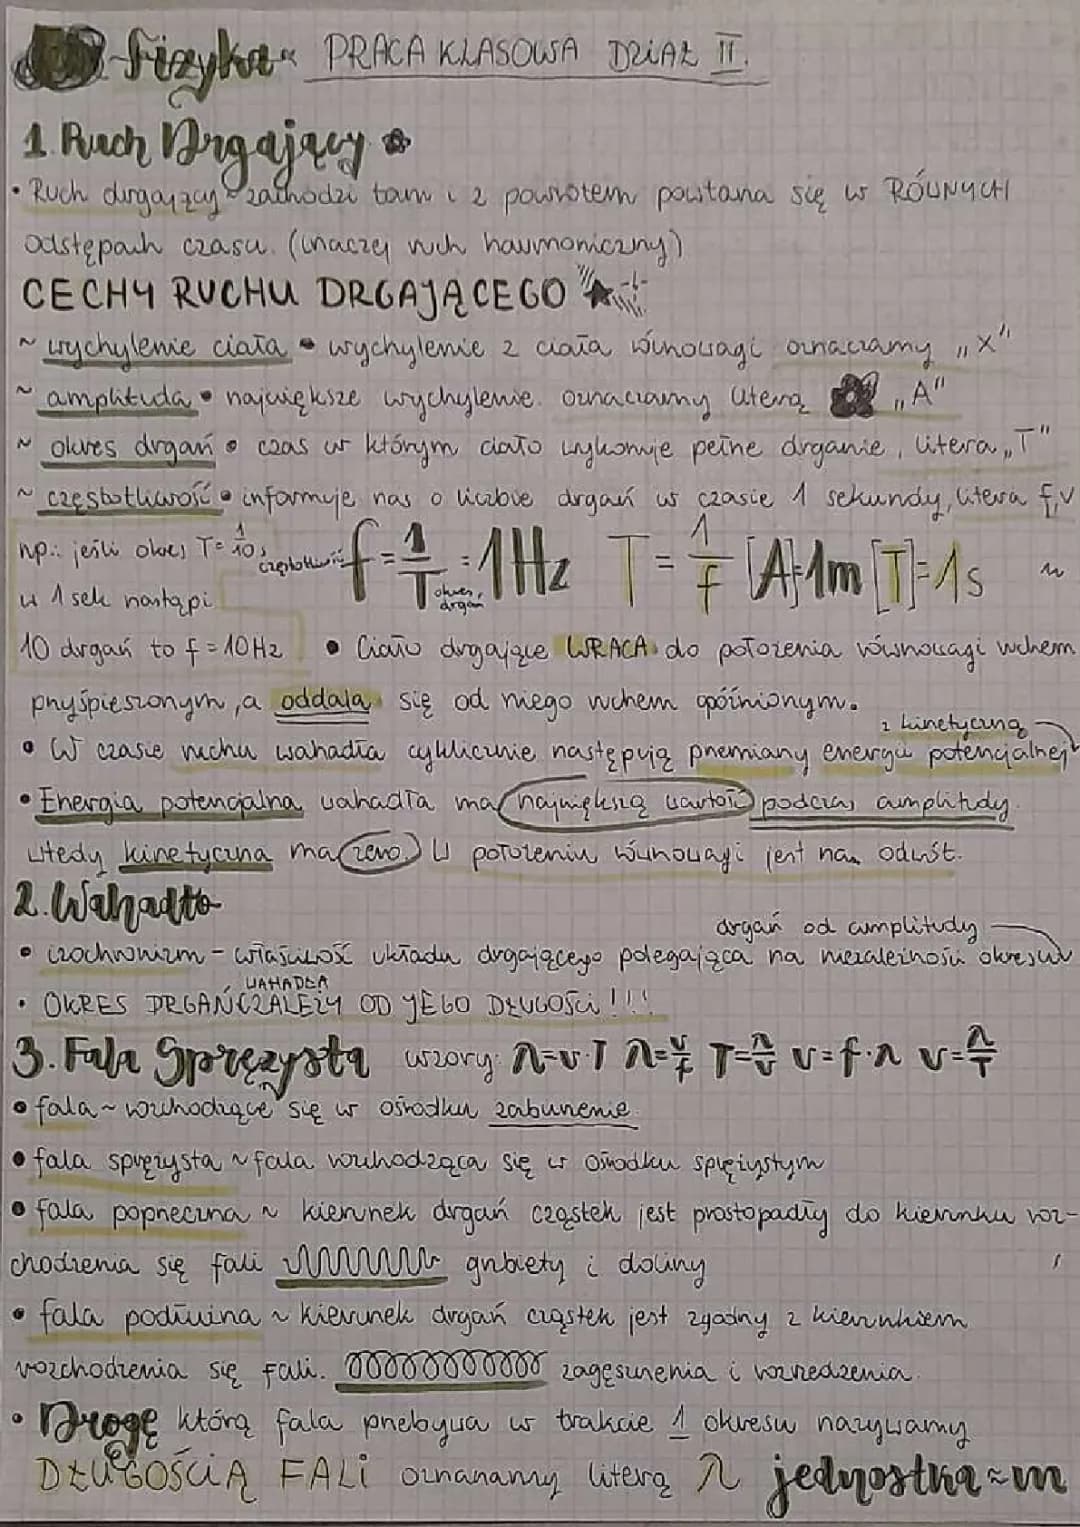 Fizyka PRACA KLASOWA DZIAŁ II.
1. Ruch Drgający
• Ruch drgający zachodzi tam i z powrotem powtarza się w RÓWNYCH
odstępach czasu. (inaczej ruch harmoniczny)
CECHY RUCHU DRGAJĄCEGO
~ wychylenie ciała • wychylenie z ciała równowagi oznaczamy „X"
~ amplituda • największe wychylenie. oznaczamy literą „A"
~ okres drgań • czas w którym ciało wykonuje pełne drganie, litera „T"
~ częstotliwość • informuje nas o liczbie drgań w czasie 1 sekundy, litera f, v
np.: jeśli okres T = 1/10 s częstotliwość f = 1/T okres drgań = 1Hz T = 1/f [A]=1m [T]=1s
w 1 sek nastąpi
10 drgań to f = 10Hz • Ciało drgające WRACA do położenia równowagi ruchem
przyśpieszonym, a oddala się od niego ruchem opóźnionym.
z kinetyczną
• W czasie ruchu wahadła cyklicznie następują przemiany energii potencjalnej
• Energia potencjalna wahadła ma największą wartość podczas amplitudy.
wtedy kinetyczna ma zero. W położeniu równowagi jest na odwrót.
2. Wahadło
drgań od amplitudy
• izochronizm - właściwość układu drgającego polegająca na niezależności okresu
WAHADŁA
• OKRES DRGAŃ ZALEŻY OD JEGO DŁUGOŚCI!!!
3. Fala Sprężysta wzory: λ=v·T λ=v/f T=λ/v v=f·λ v=λ/T
• fala ~ rozchodzące się w ośrodku zaburzenie
• fala sprężysta ~ fala rozchodząca się w ośrodku sprężystym
• fala poprzeczna ~ kierunek drgań cząstek jest prostopadły do kierunku roz-
chodzenia się fali grzbiety i doliny
• fala podłużna ~ kierunek drgań cząstek jest zgodny z kierunkiem
rozchodzenia się fali. zagęszczenia i rozrzedzenia
• Drogę którą fala przebywa w trakcie 1 okresu nazywamy
DŁUGOŚCIĄ FALI oznaczamy literą λ jednostka ~ m